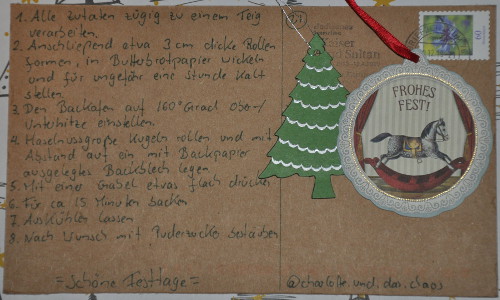 1. Alle Zutaten zügig zu einem Teig
verarbeiten.
2. Anschließend etwa 3 cm dicke Rollen
formen, in Butterbrotpapier wickeln
und für ungefähr eine Stunde kalt
stellen.
3. Den Backofen auf 160° Grad Ober-/
Unterhitze einstellen.
4. Haselnussgroße Kugeln rollen und mit
Abstand auf ein mit Backpapier
ausgelegtes Backblech legen
5. Mit einer Gabel etwas flach drücken
6. Für ca 15 Minuten backen
7. Auskühlen lassen
8. Nach Wunsch mit Puderzucker bestäuben
=Schöne Festtage=
Kaiser
Sultan
60
FROHES
FEST!
@charlotte.und.das.chaos